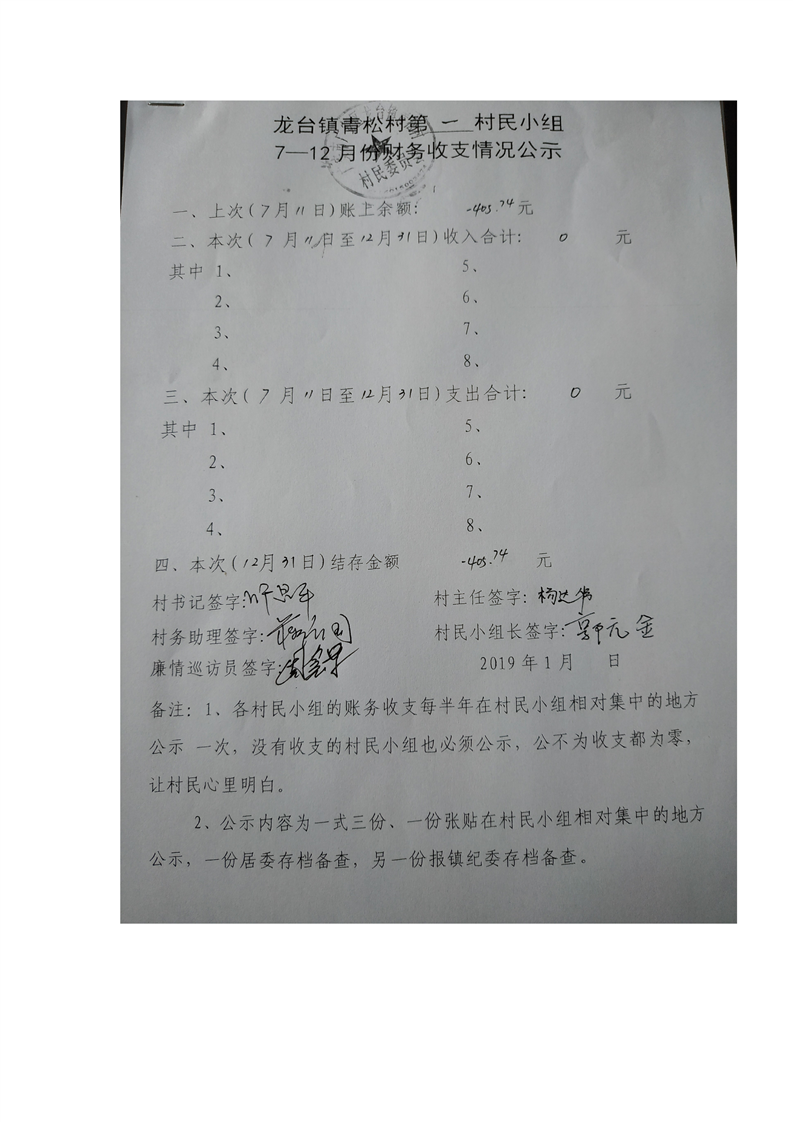 龙台镇青松村第 一 村民小组
7—12月份财务收支情况公示
村民委员会
一、上次(7月11日)账上余额: -403.74元
二、本次(7月11日至12月31日)收入合计: 0 元
其中 1、 5、
2、 6、
3、 7、
4、 8、
三、本次(7月11日至12月31日)支出合计: 0 元
其中 1、 5、
2、 6、
3、 7、
4、 8、
四、本次(12月31日)结存金额 -403.74 元
村书记签字: 村主任签字:
村务助理签字: 村民小组长签字:郭元金
廉情巡访员签字: 2019年1月 日
备注: 1、各村民小组的账务收支每半年在村民小组相对集中的地方
公示 一次，没有收支的村民小组也必须公示，公不为收支都为零，
让村民心里明白。
2、公示内容为一式三份、一份张贴在村民小组相对集中的地方
公示，一份居委存档备查，另一份报镇纪委存档备查。